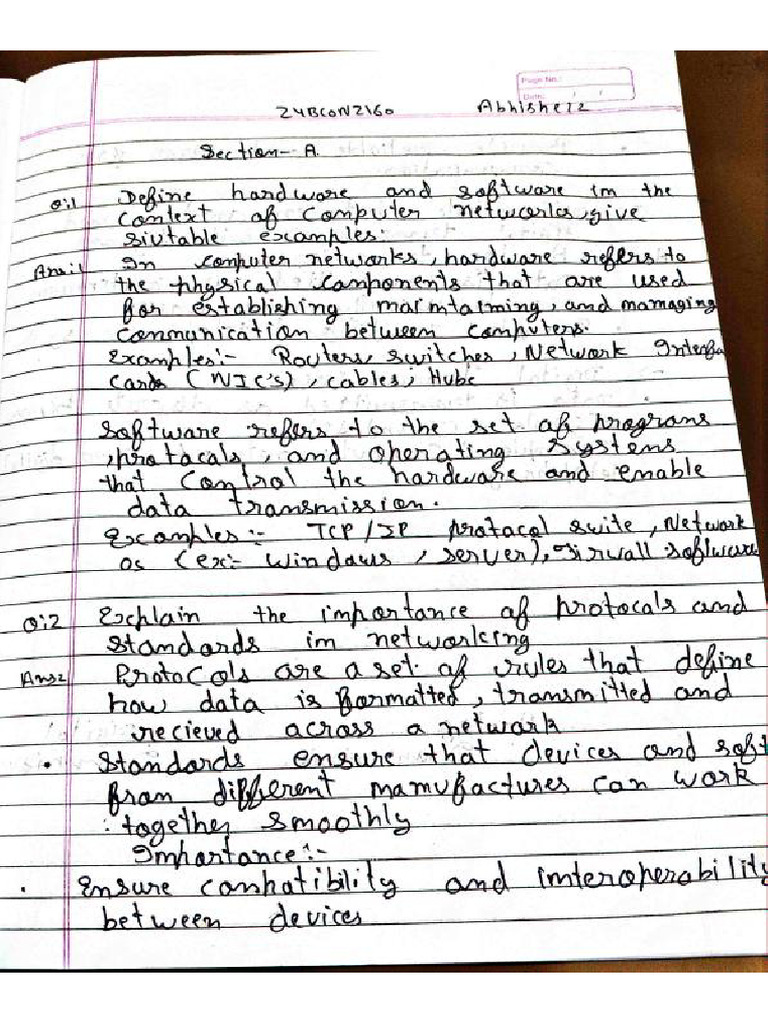 Page No.:
Date: / /
24BCON2160 Abhishek
Section - A.
Q:1 Define hardware and software in the
context of computer networks, give
siutable examples:
Ans:1 In computer networks, hardware refers to
the physical components that are used
for establishing maintaining, and managing
communication between computers.
Examples:- Routers, switches, Network Interfa
Cards (NIC's), cables, Hubs
Software refers to the set of programs
, protocals, and operating systems
that control the hardware and enable
data transmission.
Examples:- TCP/IP protocal suite, Network
os (ex:- windows, server), Firwall software
Q:2 Explain the importance of protocals and
standards in networking
Ans2 Protocols are a set of rules that define
how data is formatted, transmitted and
recieved across a network
• Standards ensure that devices and soft
from different manufactures can work
together smoothly
Importance:-
• Ensure compatibility and interoperability
between devices